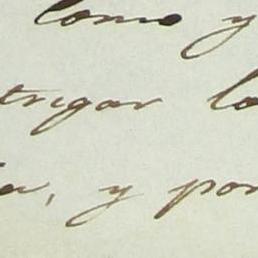 como y
trigar la
ia, y por